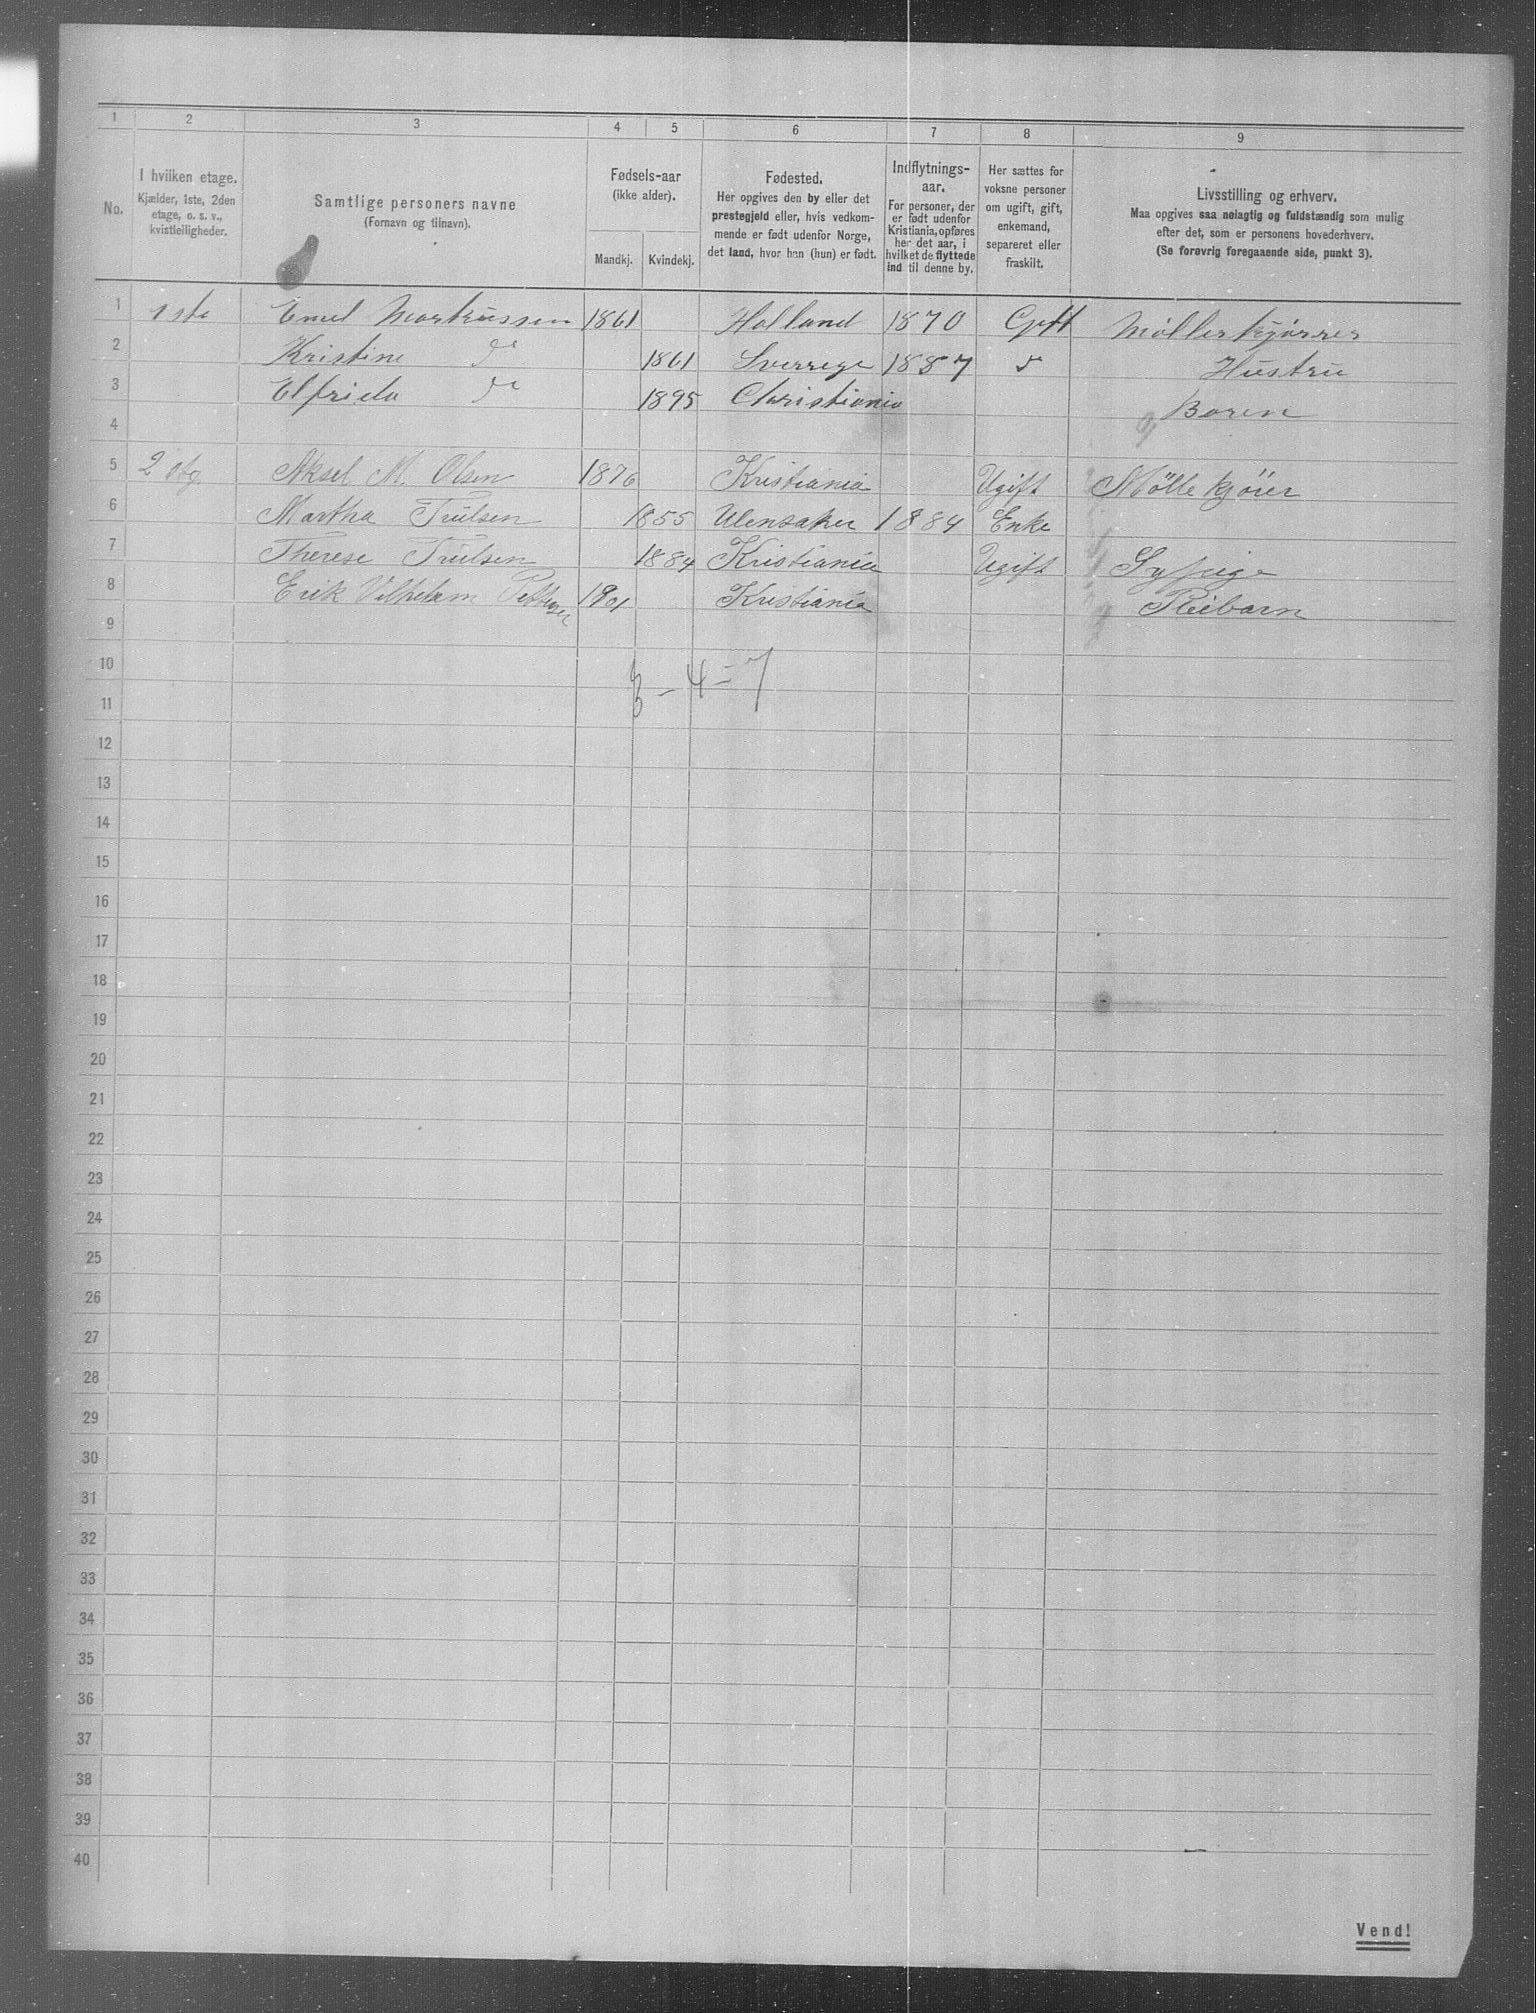 1 2 3 4 5 6 7 8 9
No.
I hvilken etage.
Kjælder, 1ste, 2den
etage, o. s. v.,
kvistleiligheder.
Samtlige personers navne
(Fornavn og tilnavn).
Fødsels-aar
(ikke alder).
Mandkj. Kvindekj.
Fødested.
Her opgives den by eller det
prestegjeld eller, hvis vedkom-
mende er født udenfor Norge,
det land, hvor han (hun) er født.
Indflytnings-
aar.
For personer, der
er født udenfor
Kristiania, opføres
her det aar, i
hvilket de flyttede
ind til denne by.
Her sættes for
voksne personer
om ugift, gift,
enkemand,
separeret eller
fraskilt.
Livsstilling og erhverv.
Maa opgives saa nøiagtig og fuldstændig som mulig
efter det, som er personens hovederhverv.
(Se forøvrig foregaaende side, punkt 3).
1 1ste Emil Markussen 1861 Holland 1870 Gift Møllerkjørrer
2 Kristine do 1861 Sverrege 1887 Hustru
3 Elfrida do 1895 Christiania Baren
4
5 2 etg. Aksel M. Olsen 1876 Kristiania Ugift Mölle kjörer
6 Martha Trulsen 1855 Ulensaker 1884 Enke
7 Therese Trulsen 1884 Kristiania Ugift Sypige
8 Erik Vilhelm Pettersen 1901 Kristiania Pleiebarn
9
10
3 - 4 = 7
11
12
13
14
15
16
17
18
19
20
21
22
23
24
25
26
27
28
29
30
31
32
33
34
35
36
37
38
39
40
Vend!